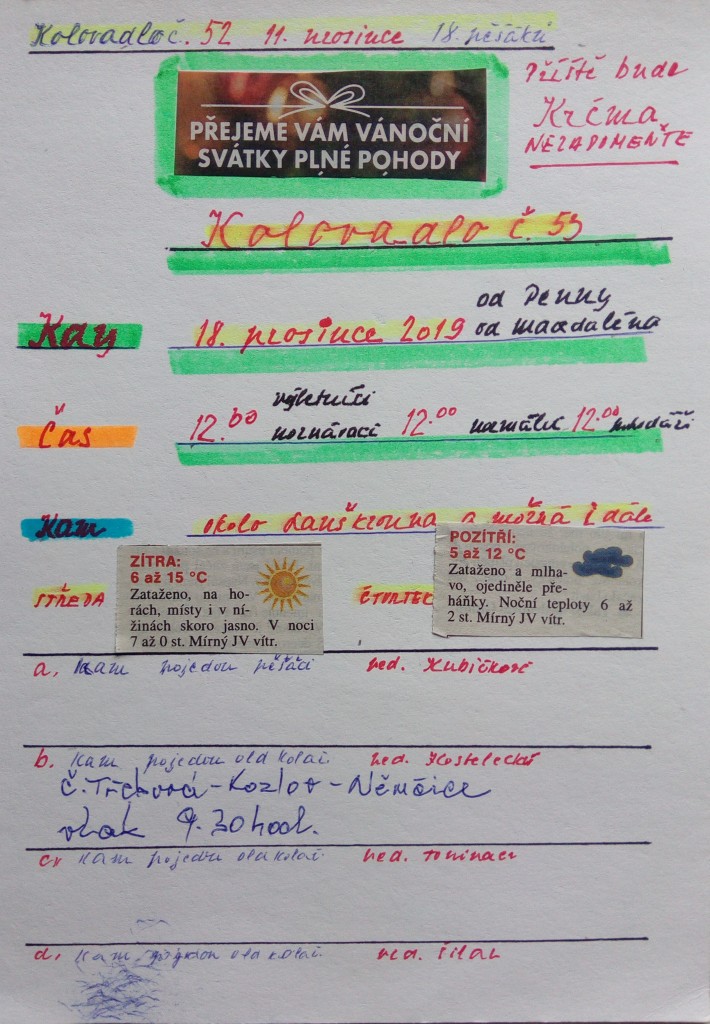 Kolovadlo č. 52 11. prosince 18. pěšáků
Příště bude
Krčma
NEZAPOMEŇTE
PŘEJEME VÁM VÁNOČNÍ
SVÁTKY PLNÉ POHODY
Kolovadlo č. 53
Kdy 18. prosince 2019 od Penny
od magdaléna
Čas 12.00 výletníci
poznávací 12.00 12.00
Kam okolo Lanškrouna a možná i dále
STŘEDA
ZÍTRA:
6 až 15 °C
Zataženo, na ho-
rách, místy i v ní-
žinách skoro jasno. V noci
7 až 0 st. Mírný JV vítr.
ČTVRTEK
POZÍTŘÍ:
5 až 12 °C
Zataženo a mlha-
vo, ojediněle pře-
háňky. Noční teploty 6 až
2 st. Mírný JV vítr.
a, Kam pojedou pěšáci ved. Kubíčkové
b. Kam pojedou old kolař. ved. Kostelecký
Č. Třebová-Kozlov-Němčice
vlak 9.30 hod.
c, Kam pojedou old kolař. ved.
d, Kam pojedou old kolař. ved. Šilar